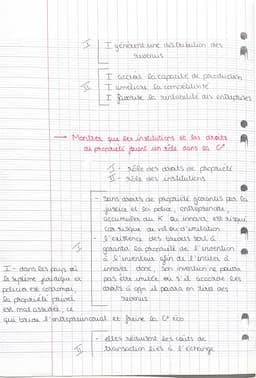 I
I génèrent une distribution des
revenus
II
I accroît la capacité de production
I améliore la compétitivité
I favorise la rentabilité des entreprises
→ Montrer que les institutions et les droits
de propriété jouent un rôle dans la C°
I - rôle des droits de propriété
II - rôle des institutions
I
- sans droits de propriété garantis par la
justice et la police, entreprendre,
accumuler du K ou innover, est risqué
car risque de vol ou d'imitation
- l'existence des brevets sert à
garantir la propriété de l'invention
à l'inventeur afin de l'inciter à
innover donc, son invention ne pourra
pas être imitée ou s'il accorde ses
droits à afin il pourra en tirer des
revenus
I - dans les pays où
le système juridique et
policier est corrompu,
la propriété privée
est mal assurée, ce
qui bride l'entrepreneuriat et freine la C° éco
II
- elles réduisent les coûts de
transaction liés à l'échange